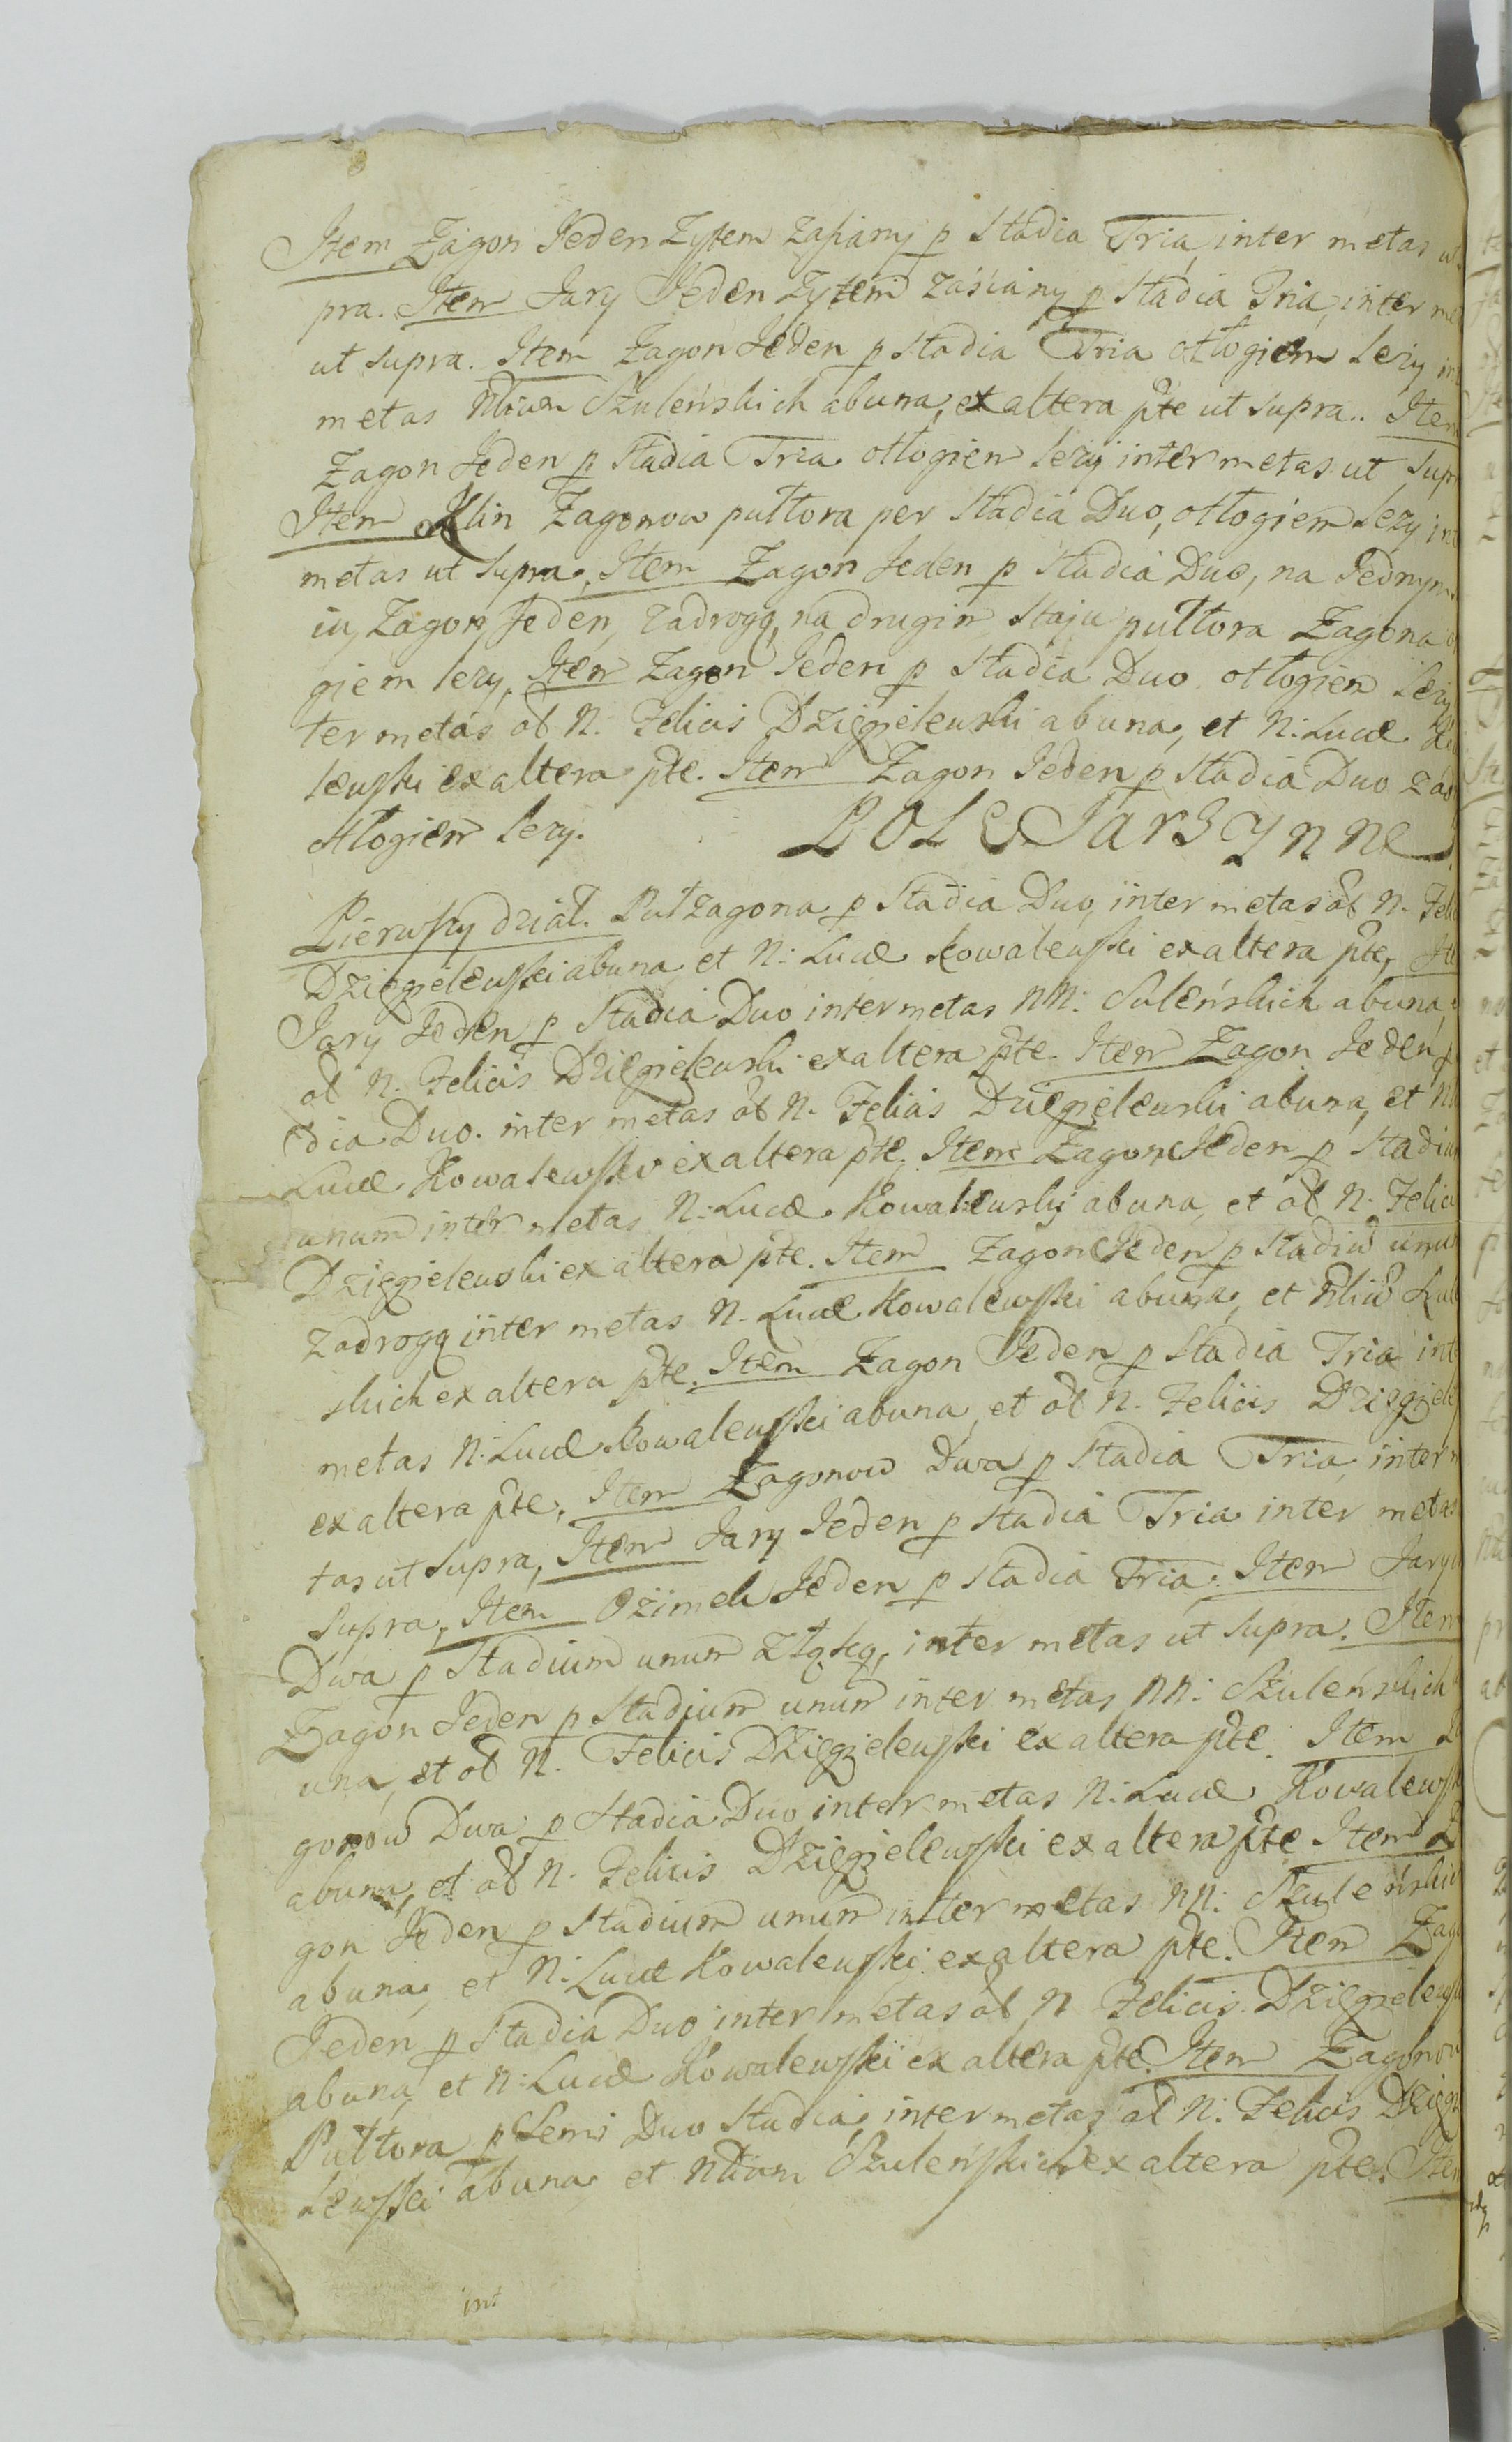 Item Zagon Jeden Zytem zasiany p Stadia Tria, inter metas ut
pra. Item Jary Jeden Zytem zasiany p Stadia Tria, inter me
ut supra. Item Zagon Jeden p Stadia Tria otłogiem lezy in
metas Nlium Szuleńskich abuna, ex altera pte ut supra.. Item
Zagon Jeden p Stadia Tria otłogiem lezy inter metas ut supr
Item Klin Zagonow pułtora per Stadia Duo, otłogiem lezy int
metas ut supra, Item Zagon Jeden p Stadia Duo, na Jednym
iu, Zagon Jeden, zadrogą, na drugim staju pułtora Zagona
giem lezy, Item Zagon Jeden p Stadia Duo otłogiem lezy
ter metas ol N. Felicis Dzięgielewski abuna, et N: Lucæ
lewski ex altera pte. Item Zagon Jeden p Stadia Duo zad
otłogiem lezy. POLE Jarzynne
Pierwszy dział. Puł zagona p Stadia Duo, inter metas ol N. Feli
Dzięgielewski abuna, et N: Lucæ Kowalewski ex altera pte, Ite
Jary Jeden p Stadia Duo inter metas NN: Suleńskich abuna,
ol N. Felicis Dzięgielewski ex altera pte. Item Zagon Jeden p
dia Duo. inter metas ol N. Felicis Dzięgielewski abuna, et N
Lucæ Kowalewski ex altera pte. Item Zagon Jeden p Stadium
unum inter metas N: Lucæ Kowalewskij abuna, et ol N. Felici
Dzięgielewski ex altera pte. Item Zagon Jeden p Stadiū unum
zadrogą inter metas N. Lucæ Kowalewski abuna, et Nliū
skich ex altera pte. Item Zagon Jeden p Stadia Tria int
metas N: Lucæ Kowalewski abuna, et ol N. Felicis Dzięgiel
ex altera pte. Item Zagonow Dwa p Stadia Tria, inter m
tas ut supra, Item Jary Jeden p Stadia Tria inter metas
supra, Item Ozimek Jeden p Stadia Tria. Item Jary
Dwa p Stadium unum złąką, inter metas ut supra. Item
Zagon Jeden p Stadium unum inter metas NN: Szuleńskich
una, et ol N. Felicis Dzięgielewski ex altera pte. Item Za
gonow Dwa p Stadia Duo inter metas N: Lucæ Kowalewsk
abuna, et ol N. Felicis Dzięgielewski ex altera pte Item Za
gon Jeden p Stadium unum inter metas NN: Szuleńskich
abuna, et N: Lucæ Kowalewski ex altera pte. Item Zago
Jeden p Stadia Duo inter metas ol N Felicis Dzięgielewsk
abuna, et N: Lucæ Kowalewski ex altera pte. Item Zagonow
Pułtora p Semi Duo Stadia, inter metas ol N: Felicis Dzięgi
lewski abuna et Nlium Szuleńskich ex altera pte. Item
int